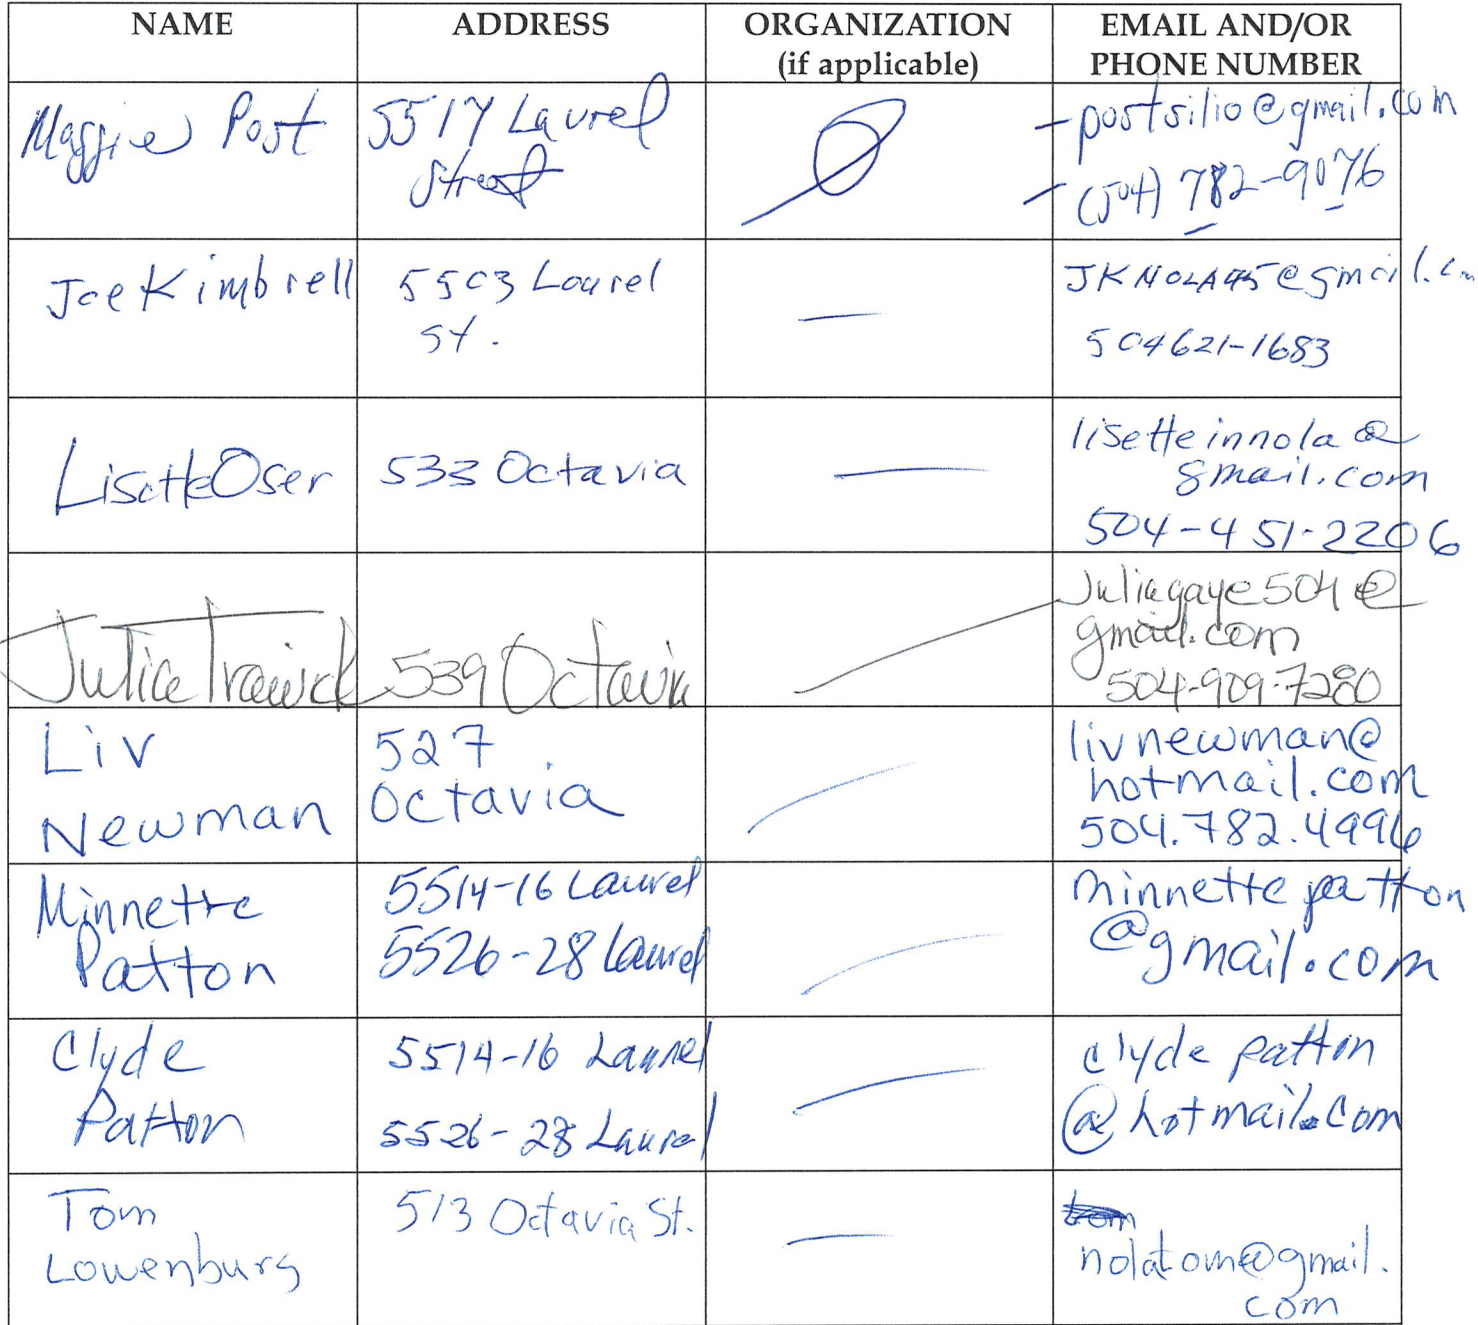 NAME
ADDRESS
ORGANIZATION
(if applicable)
EMAIL AND/OR
PHONE NUMBER
Maggie Post
5517 Laurel
Street
- postsilio@gmail.com
- (504) 782-9076
Joe Kimbrell
5503 Laurel
St.
JKNOLA45@gmail.com
504621-1683
Lisette Oser
533 Octavia
lisetteinnola@
gmail.com
504-451-2206
Julie Trawick
539 Octavia
Juliegaye504@
gmail.com
504-909-7280
Liv
Newman
527
Octavia
livnewman@
hotmail.com
504.782.4996
Minnette
Patton
5514-16 Laurel
5526-28 Laurel
minnettepatton
@gmail.com
Clyde
Patton
5514-16 Laurel
5526-28 Laurel
clyde patton
@hotmail.com
Tom
Lowenburg
513 Octavia St.
nolatom@gmail.
com